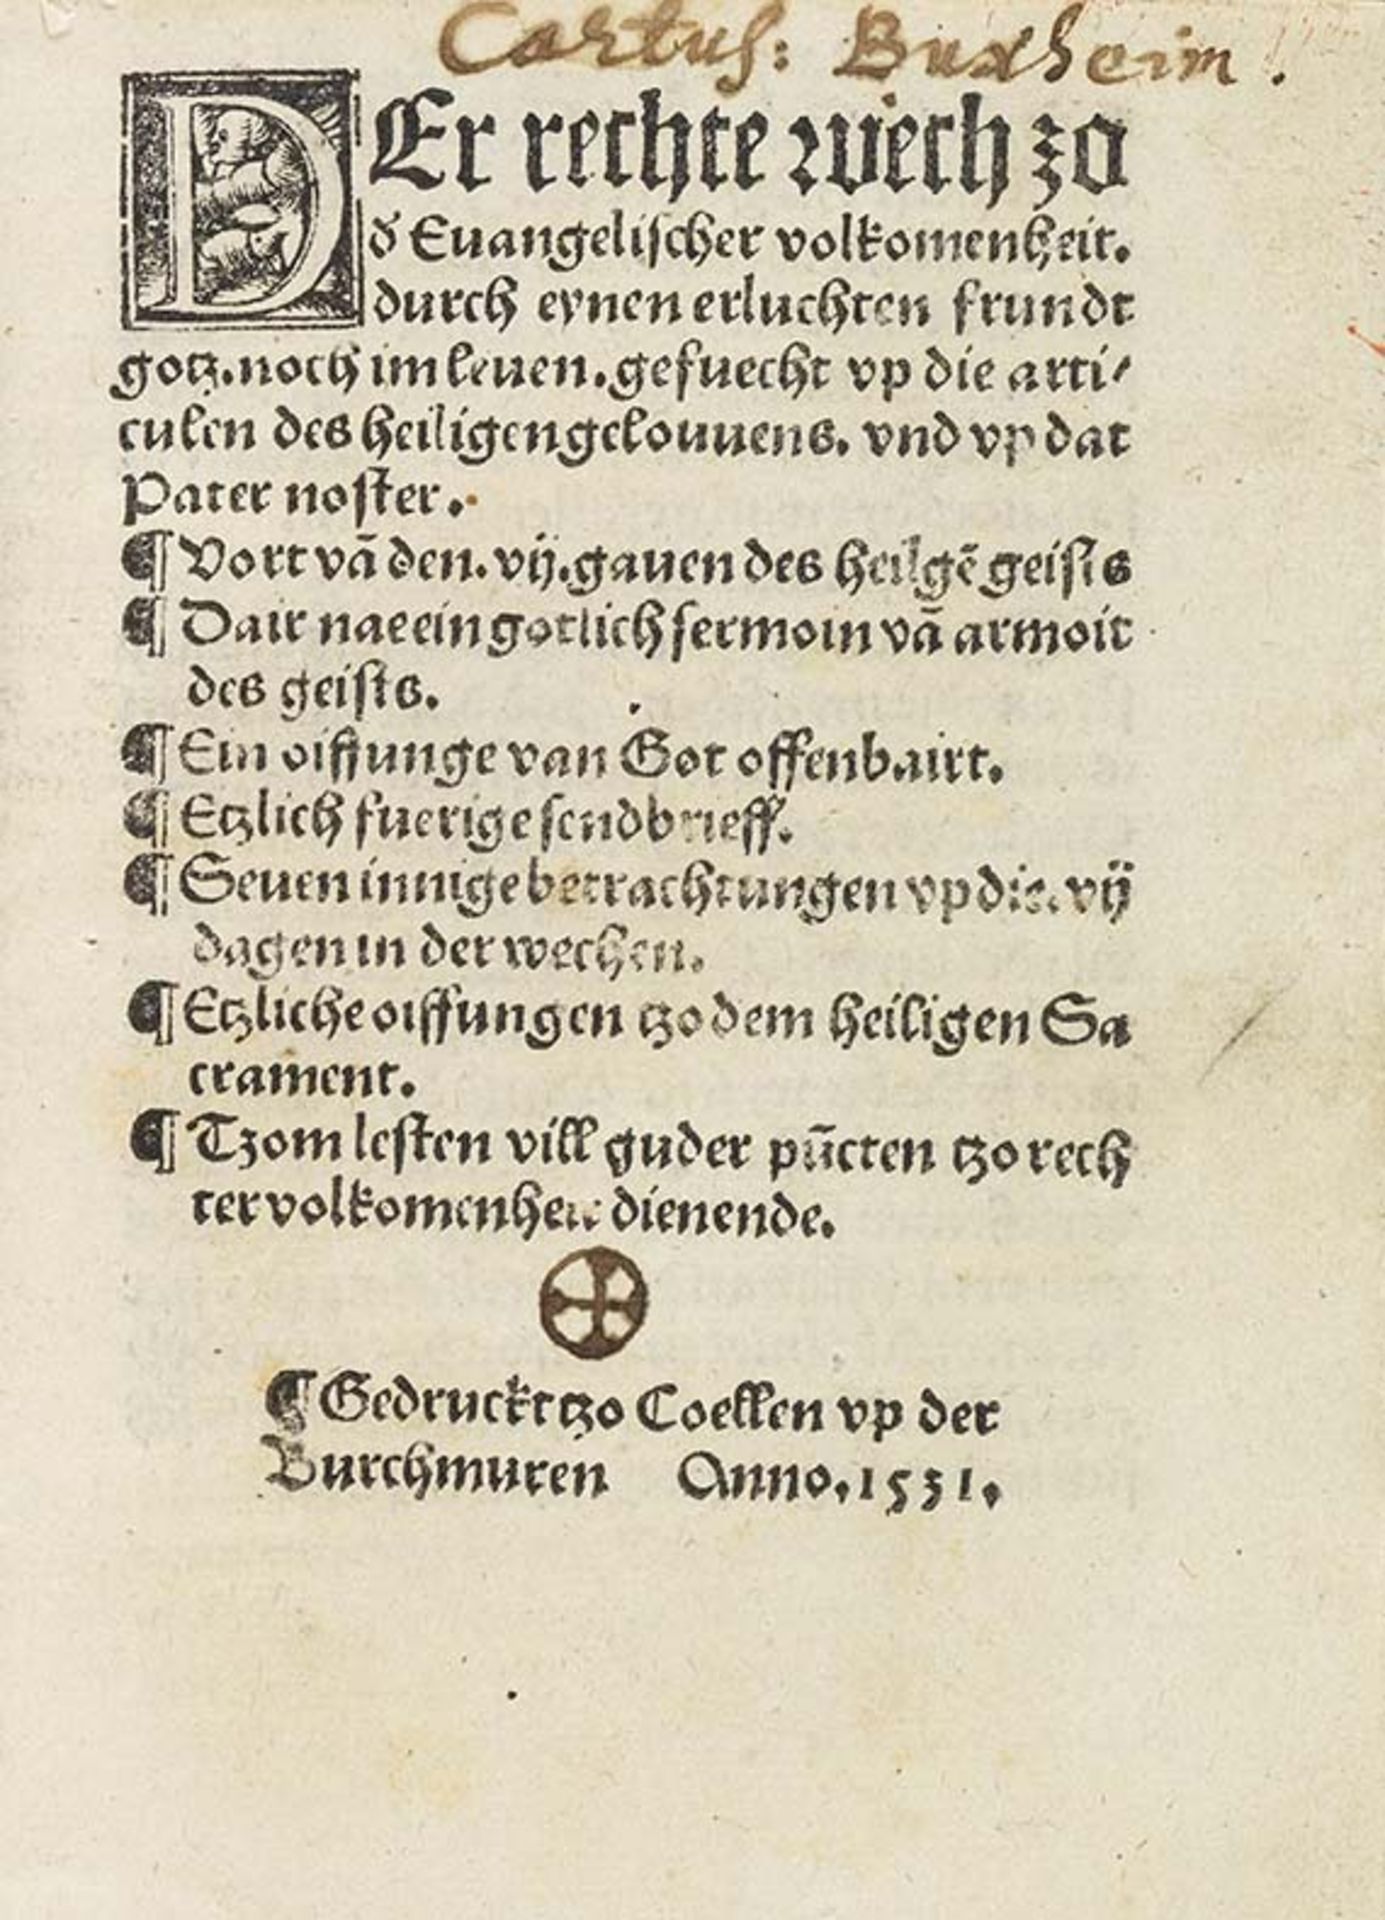 Cartus: Buxheim.
DEr rechte wech zo
d' Euangelischer volkomenheit.
durch eynen erluchten frundt
gotz. noch im leuen. gefuecht vp die arti/
culen des heiligen gelouuens. vnd vp dat
Pater noster.
¶ Vort vā den. vij. gauen des heilgē geists
¶ Dair nae ein gotlich sermoin vā armoit
des geists.
¶ Ein oiffunge van Got offenbairt.
¶ Etzlich fuerige sendbrieff.
¶ Seuen innige betrachtungen vp die. vij
dagen in der wechen.
¶ Etzliche oiffungen tzo dem heiligen Sa
crament.
¶ Tzom lesten vill guder pūcten tzo rech
ter volkomenheit dienende.
¶ Gedruckt tzo Coellen vp der
Burchmuren Anno. 1531.